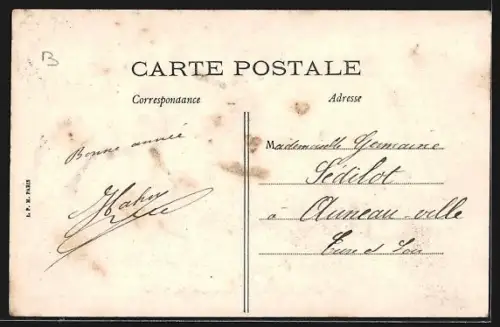 B
CARTE POSTALE
Correspondance
Adresse
Bonne année
Mademoiselle Germaine
Sédilot
à Auneau-ville
Eure et Loir
L. P. M. PARIS